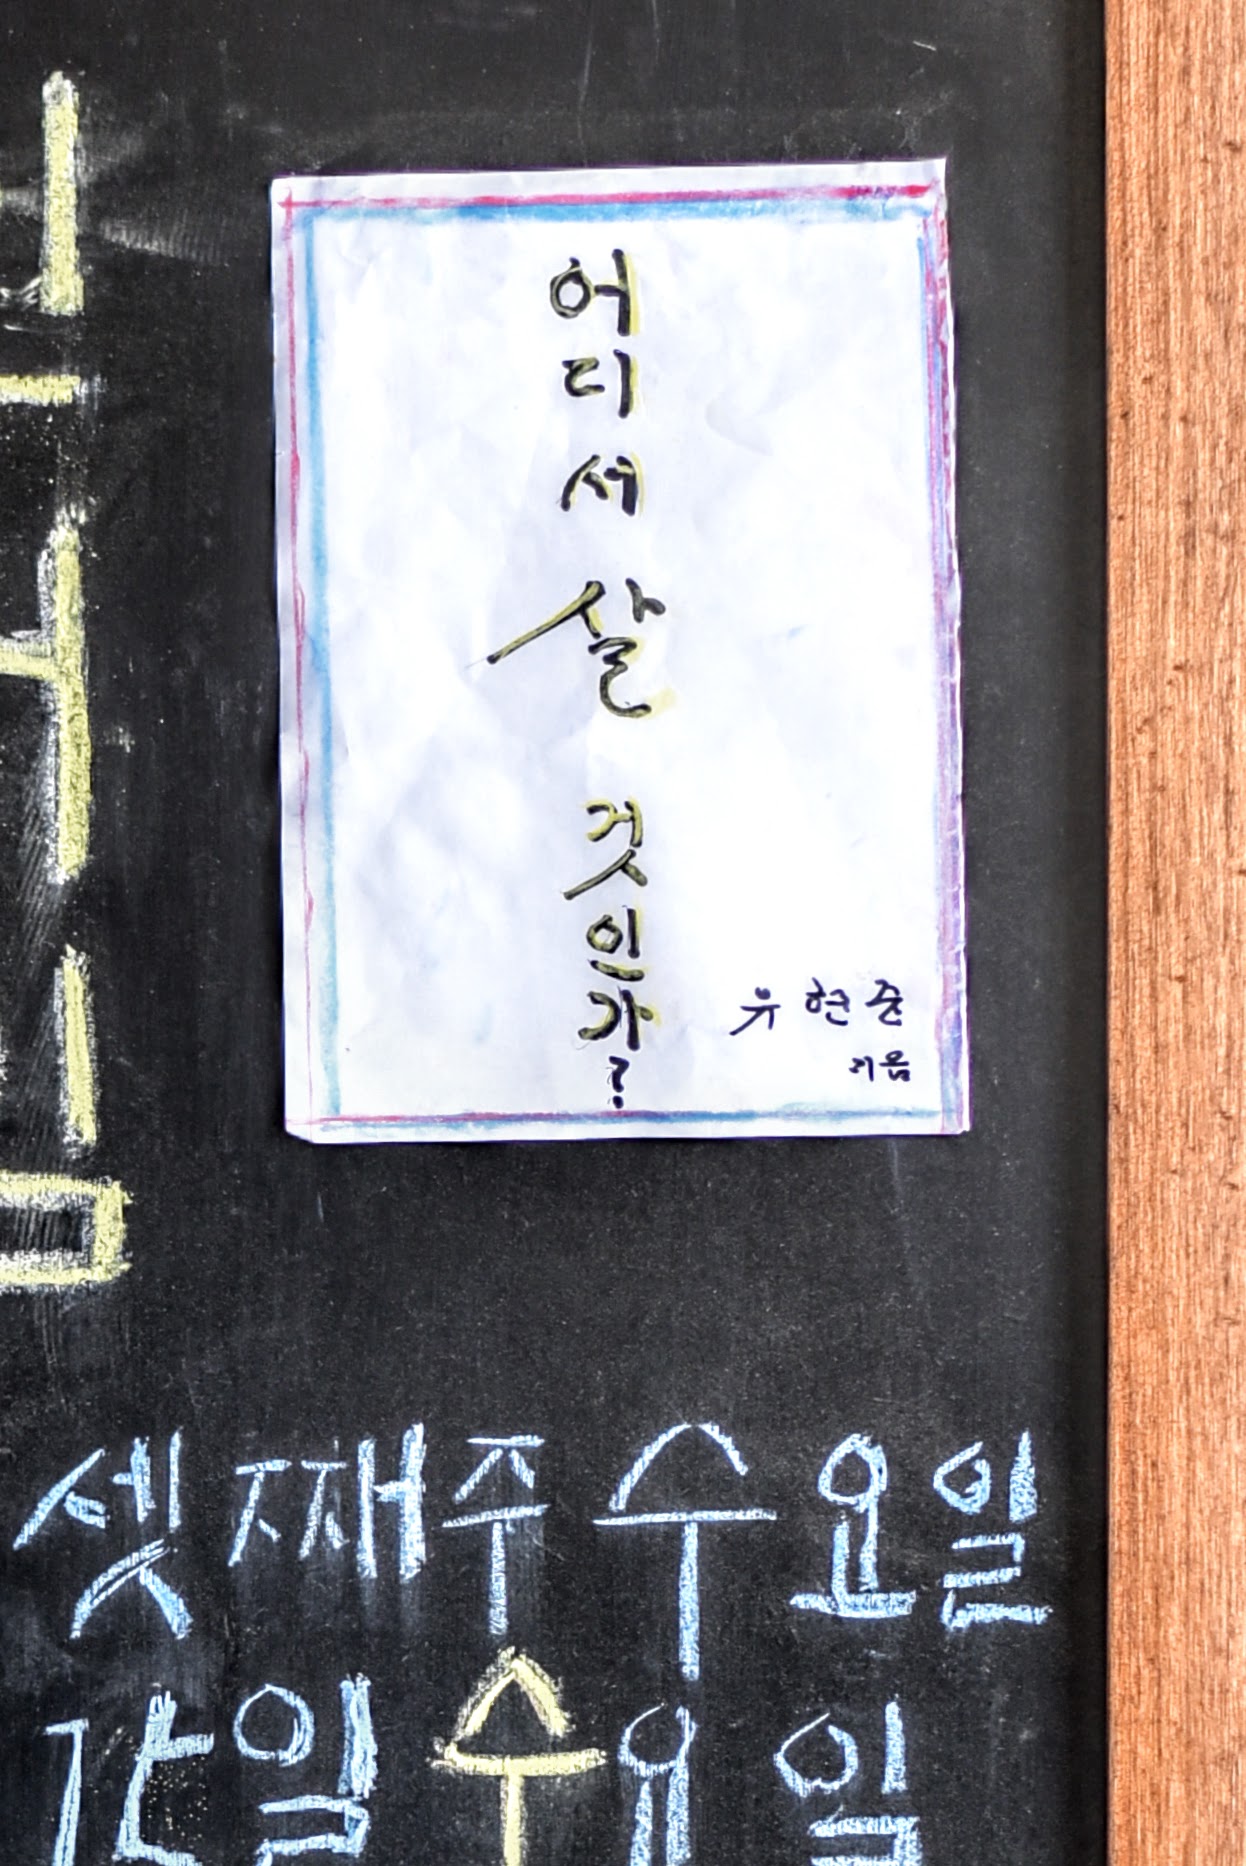 어디서 살 것인가?
유현준
지음
셋째주 수요일
12일 수요일